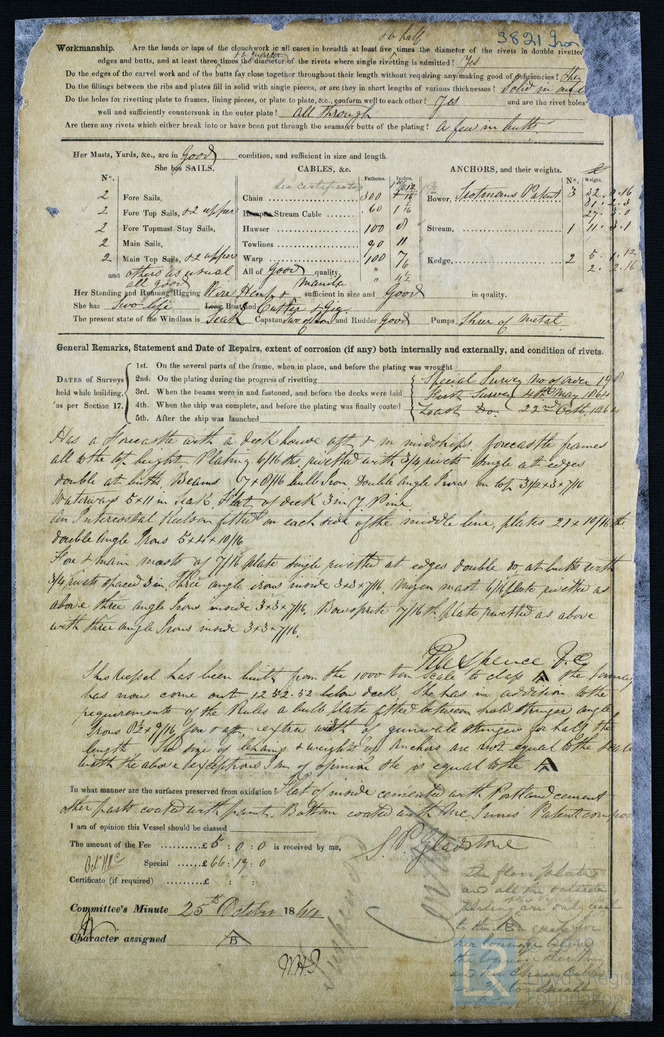 3821 Iron
& a half
Workmanship. Are the lands or laps of the clenchwork in all cases in breadth at least five times the diameter of the rivets in double rivetted
edges and butts, and at least three times the diameter of the rivets where single rivetting is admitted? Yes
Do the edges of the carvel work and of the butts fay close together throughout their length without requiring any making good of deficiencies? They
Do the fillings between the ribs and plates fill in solid with single pieces, or are they in short lengths of various thicknesses? Solid in one
Do the holes for rivetting plate to frames, lining pieces, or plate to plate, &c., conform well to each other? Yes and are the rivet holes
well and sufficiently countersunk in the outer plate? all through
Are there any rivets which either break into or have been put through the seams or butts of the plating? a few in butts
Her Masts, Yards, &c., are in Good condition, and sufficient in size and length.
She has SAILS. CABLES, &c. Fathoms. Inches. ANCHORS, and their weights.
N°. N°. Weight.
See certificates
2 Fore Sails, Chain 300 Bower, Trotmans Patent 3 32.0.16
2 Fore Top Sails, & 2 upper Hempen Stream Cable 60 31.2.3
2 Fore Topmast Stay Sails, Hawser 100 8 27.3.0
2 Main Sails, Towlines 90 11 Stream, 1 11.3.1
2 Main Top Sails, & 2 upper Warp 100 7 Kedge, 2 5.1.12
and others as usual All of Good quality. 2.2.16
all good
Her Standing and Running Rigging Wire Hemp & Manila sufficient in size and Good in quality.
She has Two life Long Boat Cutter & Gig
The present state of the Windlass is Teak Capstan and Rudder Good Pumps Three of Metal
General Remarks, Statement and Date of Repairs, extent of corrosion (if any) both internally and externally, and condition of rivets.
DATES of Surveys held while building, as per Section 17.
1st. On the several parts of the frame, when in place, and before the plating was wrought
2nd. On the plating during the progress of rivetting
3rd. When the beams were in and fastened, and before the decks were laid
4th. When the ship was complete, and before the plating was finally coated
5th. After the ship was launched
Special Survey No of order 198
First Survey 4th May 1864
Last do. 22nd Octr 1864
Has a Forecastle with a deck house aft & in midships forecastle frames
all to the top height. Plating 6/16 ths rivetted with 3/4 rivets single at edges
double at butts. Beams 7 x 8/16 bulb Iron Double Angle Irons on top 3 1/2 x 3 x 7/16
Waterways 5 x 11 in teak. Flat of deck 3 in Y Pine
An Intercostal Keelson fitted on each side of the middle line, plates 21 x 10/16 ths
double Angle Irons 5 x 4 x 10/16
Fore & main masts of 7/16 plate single rivetted at edges double do at butts with
3/4 rivets spaced 3 in, Three angle irons inside 3 x 3 x 7/16. Mizen mast 6/16 plate rivetted as
above three angle Irons inside 3 x 3 x 7/16. Bowsprit 7/16 th plate rivetted as above
with three angle Irons inside 3 x 3 x 7/16.
Spence
This Vessel has been built from the 1000 ton scale to class A the tonnage
has now come out 1232.52 below deck, She has in addition to the
requirements of the Rules a bulb plate fitted between hold stringer angle
Irons 8 1/2 x 9/16 fore & aft, extra width of gunwale stringer for half the
length. The size of chains & weight of anchors are not equal to the
with the above exceptions I am of opinion she is equal to the A
In what manner are the surfaces preserved from oxidation? Flat of inside cemented with Portland cement
other parts coated with paint. Bottom coated with Mc Innes Patent compos
I am of opinion this Vessel should be classed
The amount of the Fee £5 : 0 : 0 is received by me,
Special £66 : 19 : 0
Certificate (if required) £ : :
Gladstone
Committee's Minute 25th October 1864
Character assigned A B
Suspended
The floor plates
and all the outside
plating are only equal
to the B grade for
her tonnage
LR
Lloyd's Register
Foundation